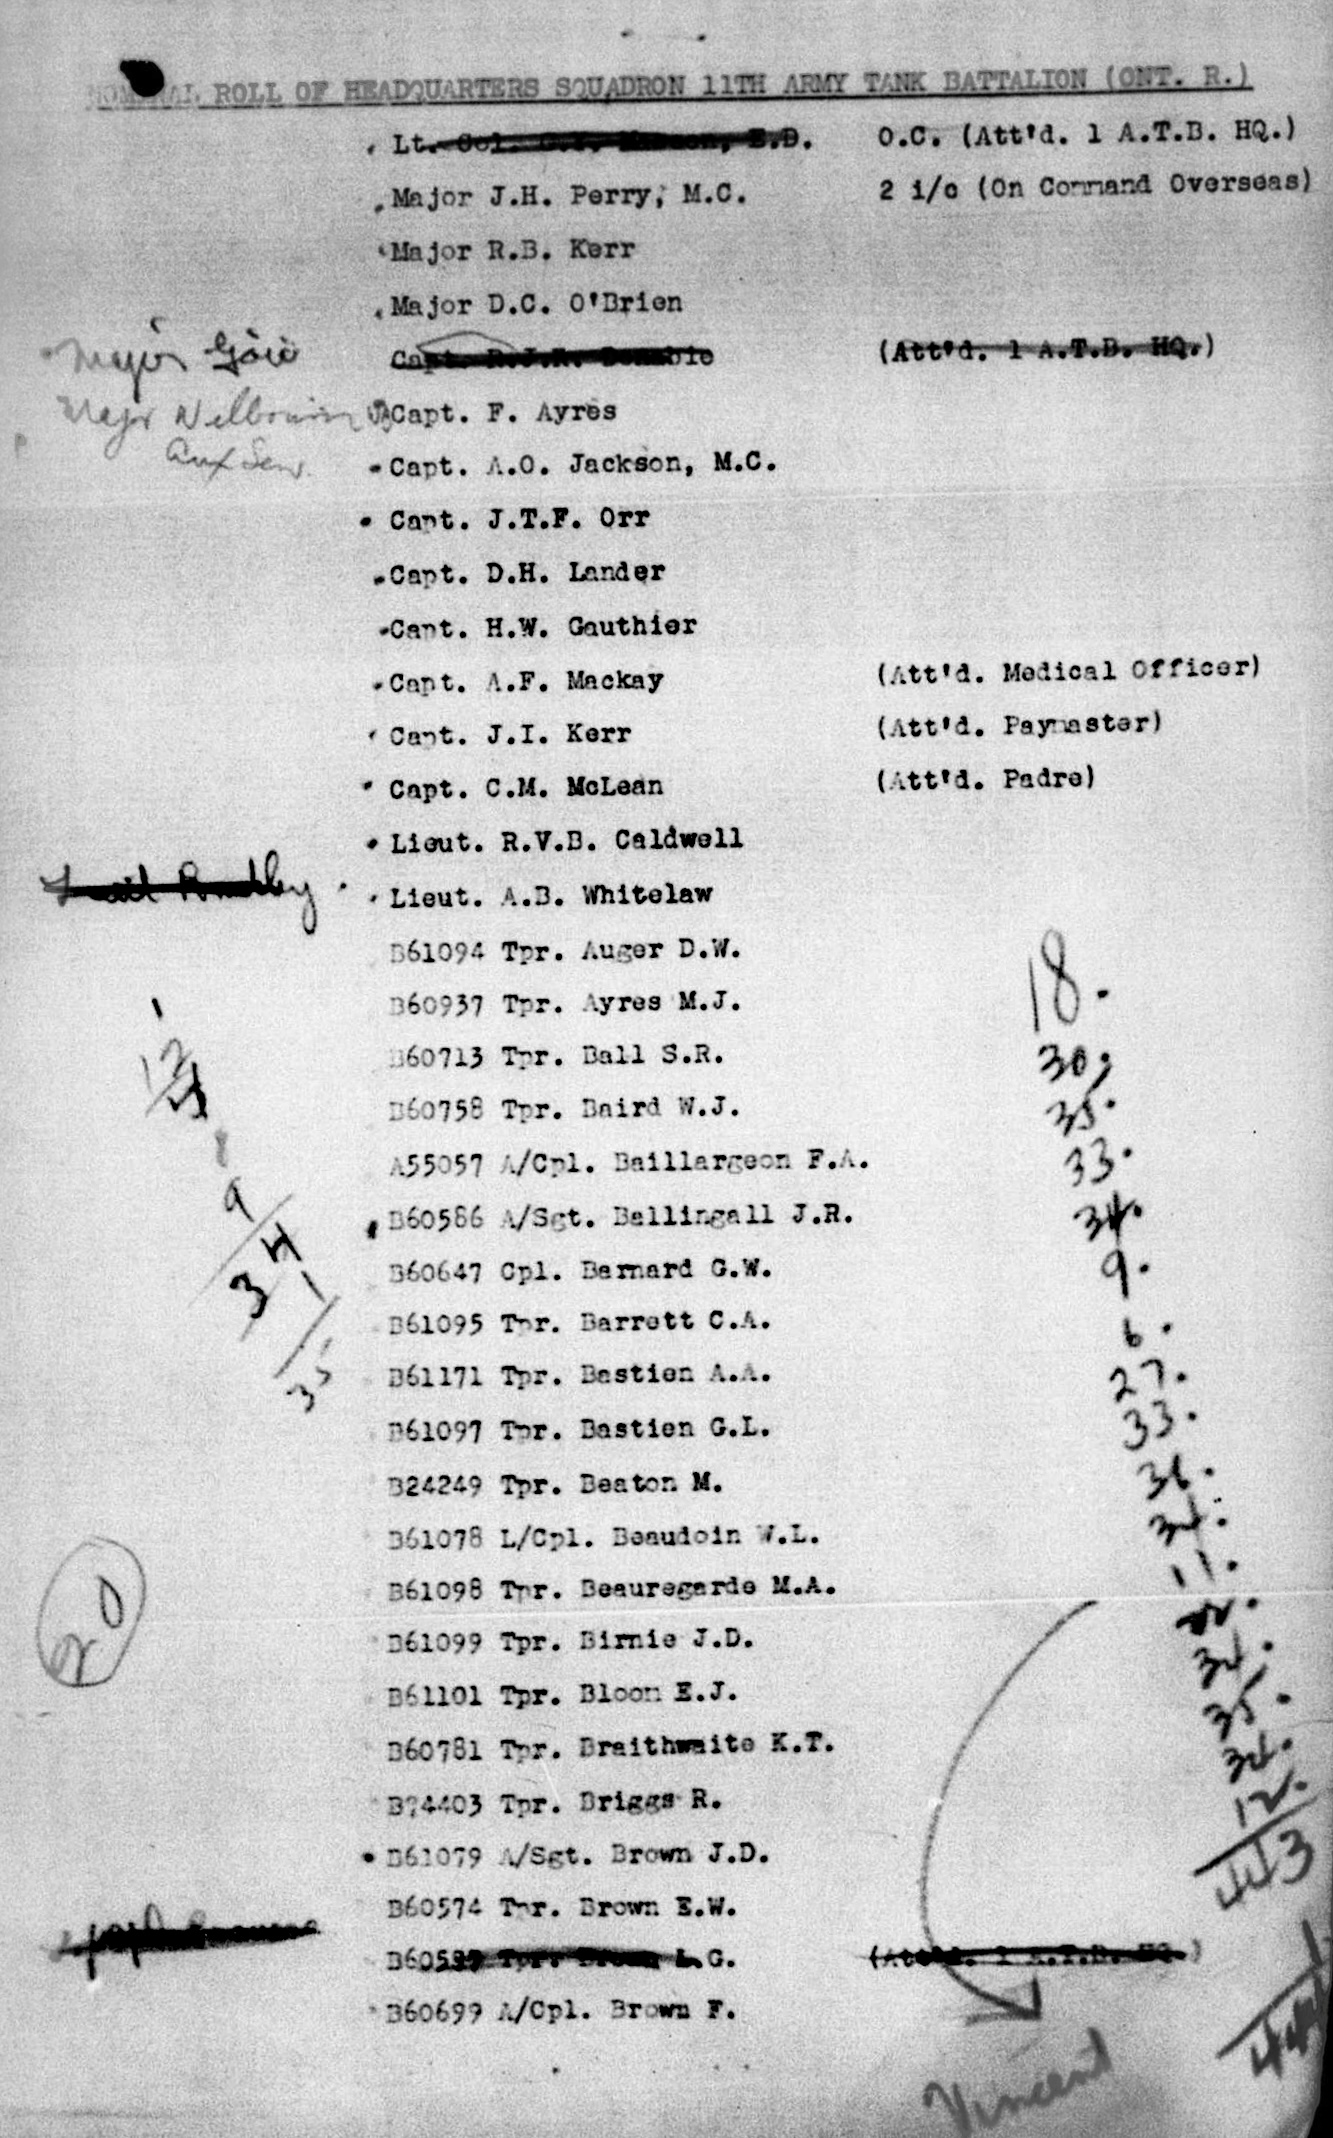 NOMINAL ROLL OF HEADQUARTERS SQUADRON 11TH ARMY TANK BATTALION (ONT. R.)
Lt. Col. E.D. O.C. (Att'd. 1 A.T.B. HQ.)
Major J.H. Perry, M.C. 2 i/c (On Command Overseas)
Major R.B. Kerr
Major D.C. O'Brien
Major Capt. (Att'd. 1 A.T.B. HQ.)
Major Capt. F. Ayres
Aux Serv.
Capt. A.O. Jackson, M.C.
Capt. J.T.F. Orr
Capt. D.H. Lander
Capt. H.W. Gauthier
Capt. A.F. Mackay (Att'd. Medical Officer)
Capt. J.I. Kerr (Att'd. Paymaster)
Capt. C.M. McLean (Att'd. Padre)
Lieut. R.V.B. Caldwell
Lieut. A.B. Whitelaw
B61094 Tpr. Auger D.W.
B60937 Tpr. Ayres M.J. 18.
B60713 Tpr. Ball S.R. 30.
B60758 Tpr. Baird W.J. 35.
A55057 A/Cpl. Baillargeon F.A. 33.
B60586 A/Sgt. Ballingall J.R. 34.
B60647 Cpl. Barnard G.W. 9.
B61095 Tpr. Barrett C.A. 6.
B61171 Tpr. Bastien A.A. 27.
B61097 Tpr. Bastien G.L. 33.
B24249 Tpr. Beaton M. 36.
B61078 L/Cpl. Beaudoin W.L. 34.
B61098 Tpr. Beauregarde M.A. 11.
20
B61099 Tpr. Birnie J.D. 34.
B61101 Tpr. Bloom E.J. 35.
B60781 Tpr. Braithwaite K.T. 34.
B74403 Tpr. Briggs R. 12.
B61079 A/Sgt. Brown J.D. 443
B60574 Tpr. Brown E.W.
Tpr. Brown L.G. (Att'd. 1 A.T.B. HQ.)
B60699 A/Cpl. Brown F.
Vincent